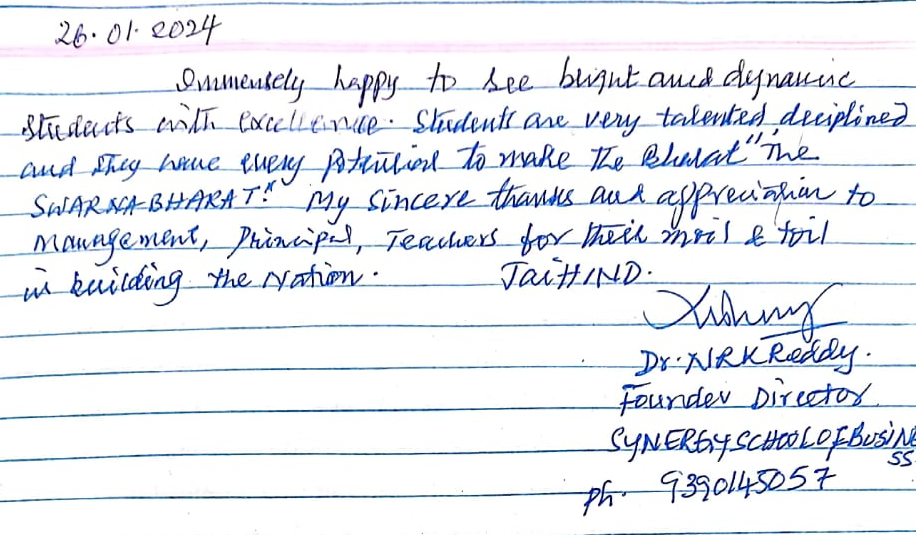 26.01.2024
Immensely happy to see bright and dynamic
Students with excellence. Students are very talented, deciplined
and they have every potential to make the Bharat "The
SWARNA-BHARAT". My sincere thanks and appreciation to
Management, Principal, Teachers for their moil & toil
in building the Nation. JAI HIND.
Dr. NRK Reddy.
Founder Director
SYNERGY SCHOOL OF BUSINE
SS
Ph. 9390145057